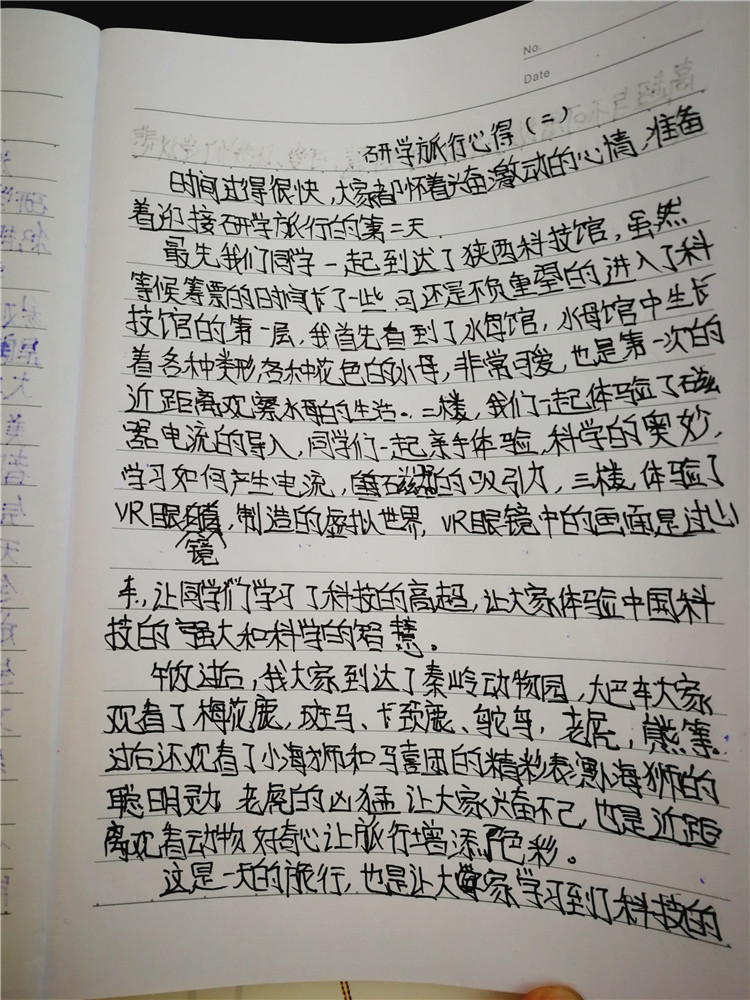 No.
Date
研学旅行心得(二)
时间过得很快,大家都怀着兴奋激动的心情,准备
着迎接研学旅行的第二天
最先我们同学一起到达了狭西科技馆,虽然
等候筹票的时间长了一些,可还是不负重望的进入了科
技馆的第一层,我首先看到了水母馆,水母馆中生长
着各种类形,各种花色的水母,非常可爱,也是第一次的
近距离观察水母的生活。二楼,我们一起体验了磁
器电流的导入,同学们一起亲手体验,科学的奥妙,
学习如何产生电流,磁的吸引力,三楼,体验了
VR眼镜,制造的虚拟世界,VR眼镜中的画面是过山
车,让同学们学习了科技的高超,让大家体验中国科
技的强大和科学的智慧。
午饭过后,我大家到达了秦岭动物园,大巴车大家
观看了梅花鹿,斑马、长颈鹿、鸵鸟,老虎,熊等。
过后还观看了小海狮和马喜团的精彩表演小海狮的
聪明灵动,老虎的凶猛,让大家兴奋不已,也是近距
离观看动物,好奇心让旅行增添了色彩。
这是一天的旅行,也是让大家学习到了科技的